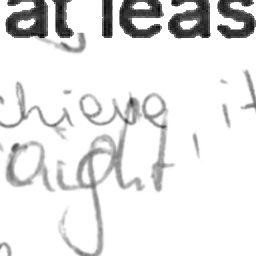 at leas
chieve, it
aight